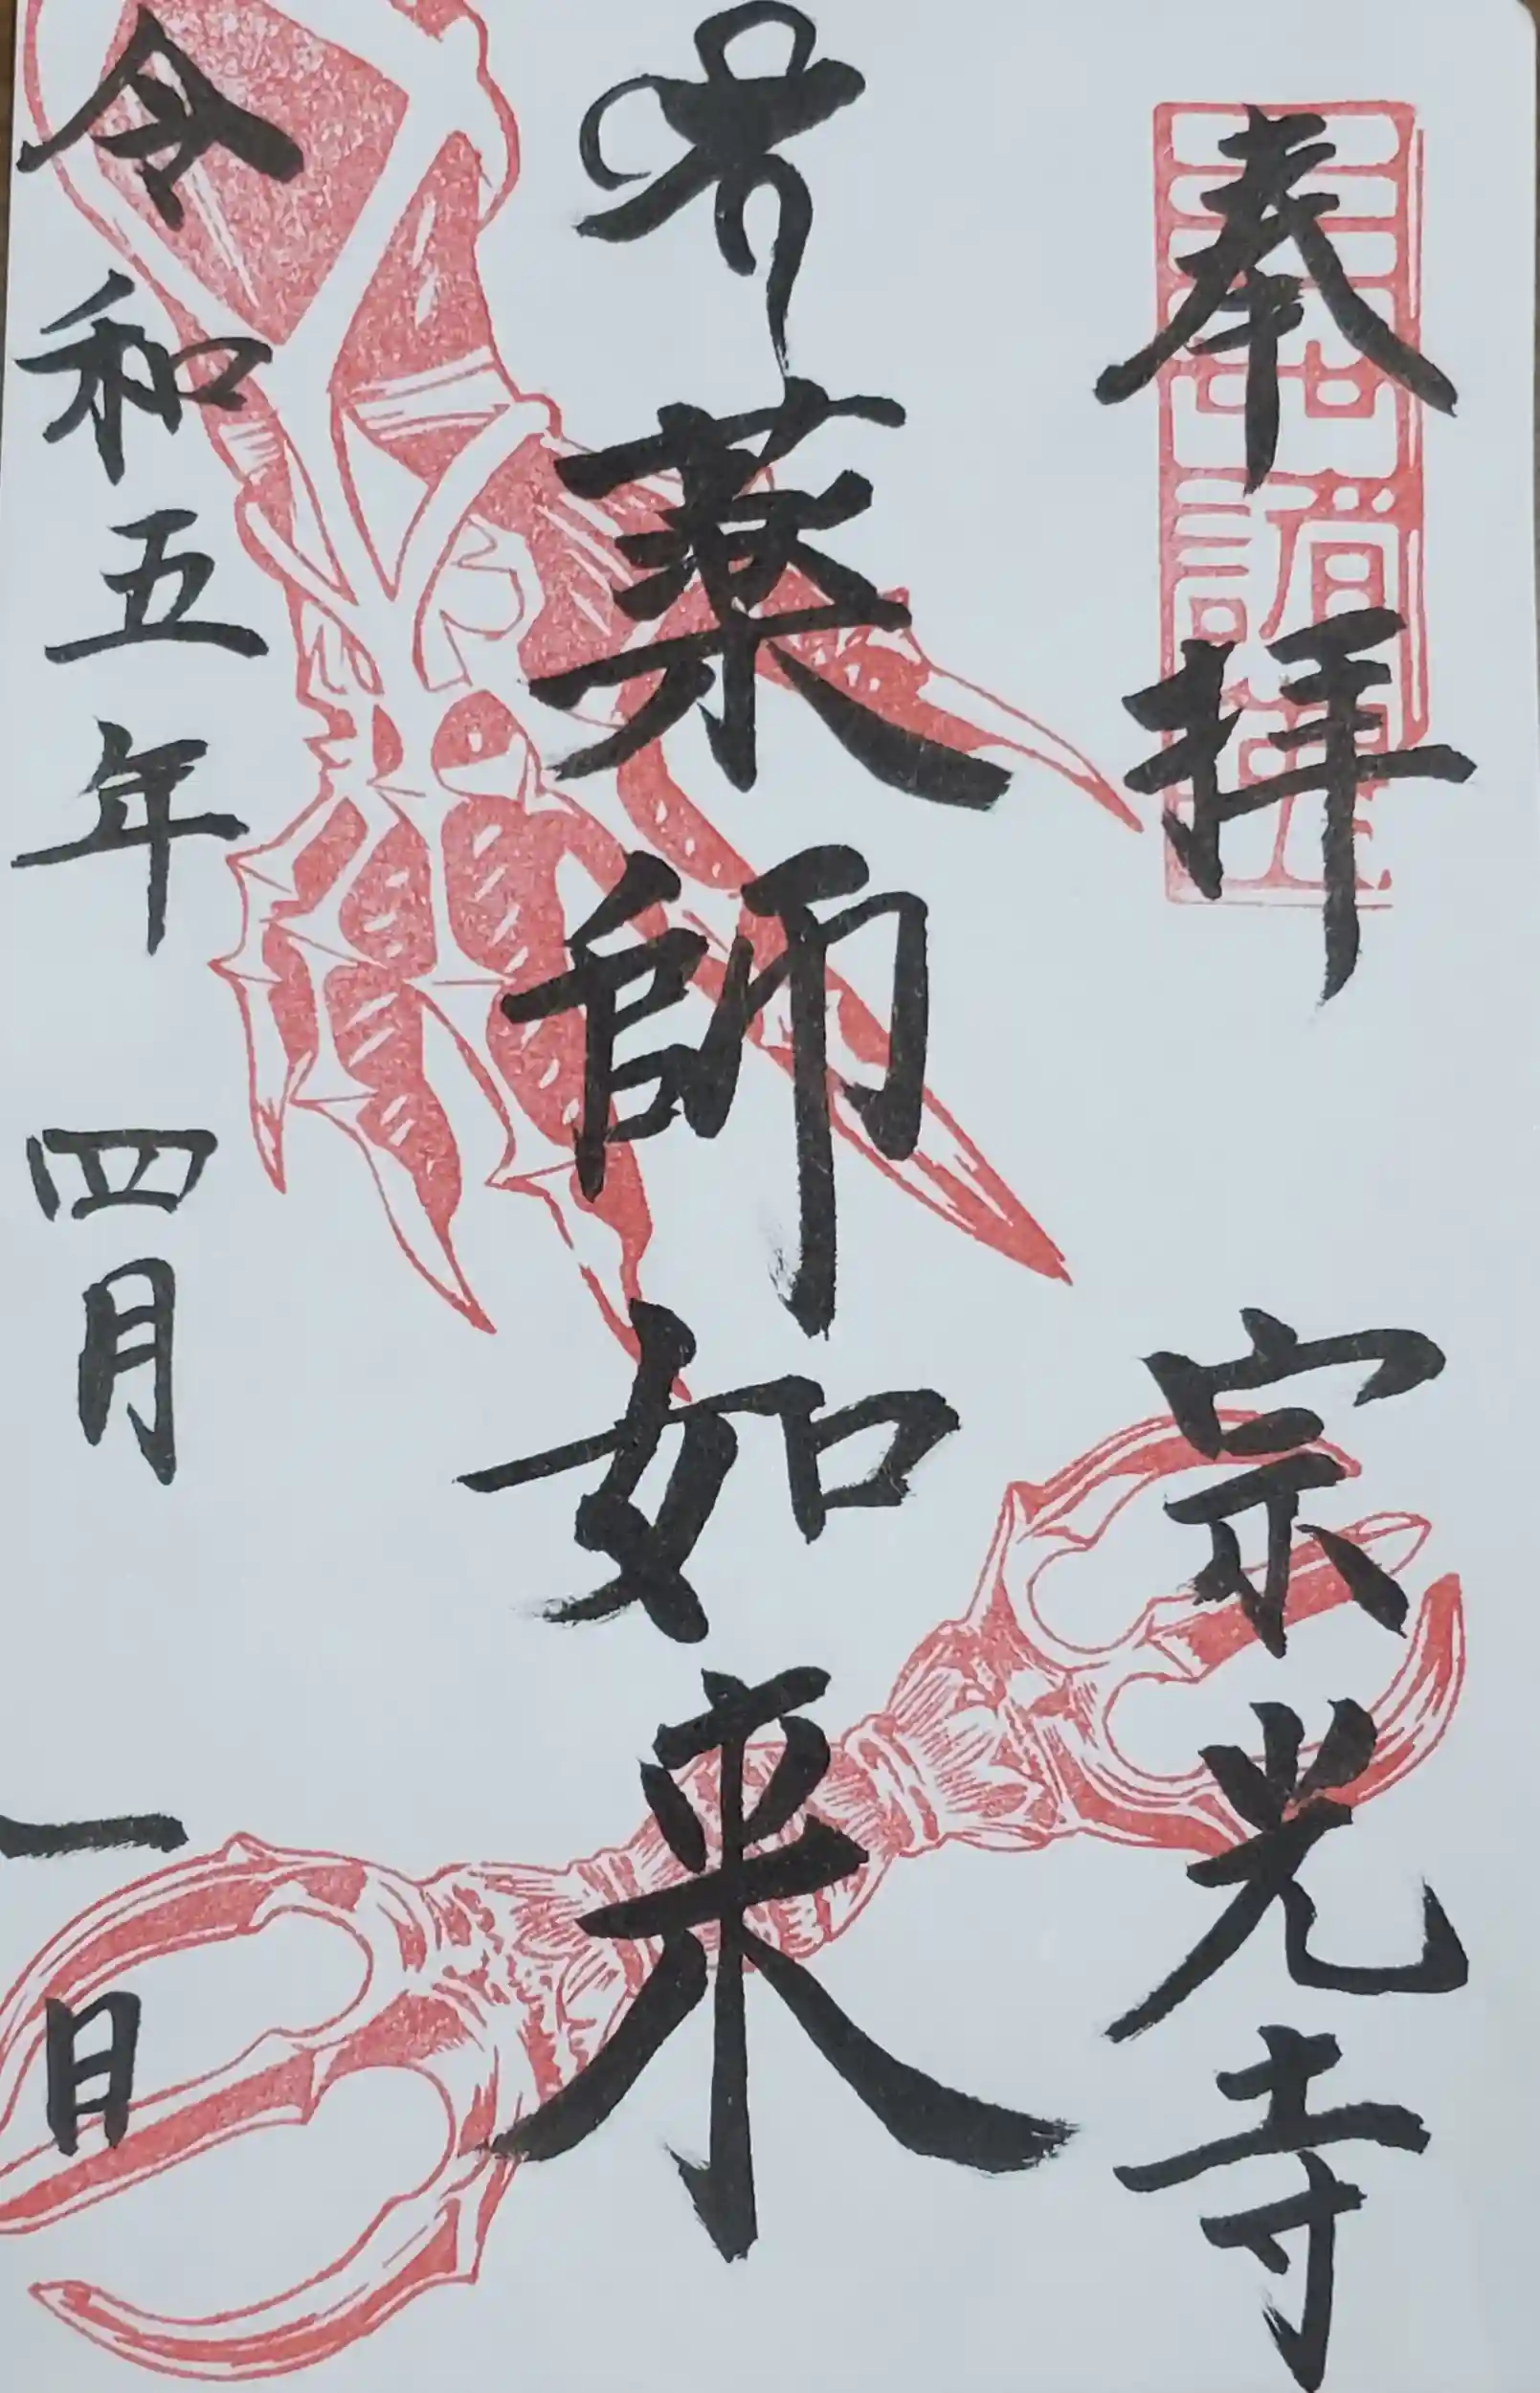 奉拝 宗光寺
薬師如来
令和五年 四月 一日